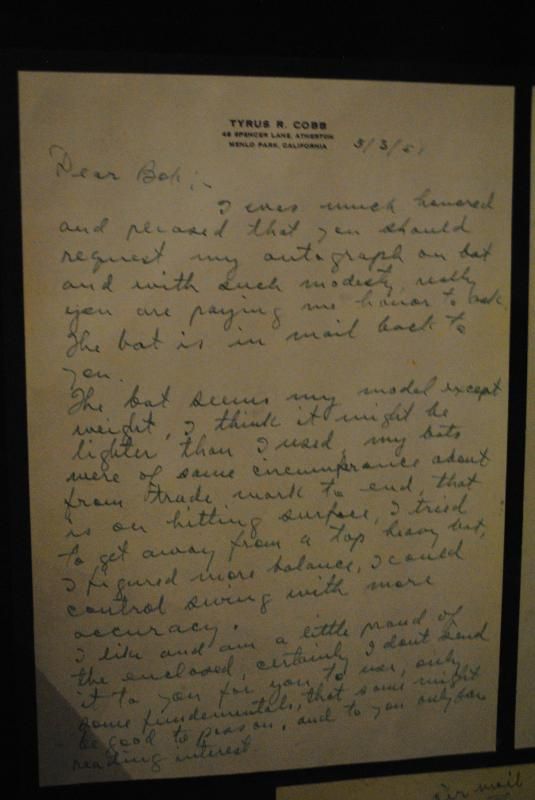 TYRUS R. COBB
48 SPENCER LANE, ATHERTON
MENLO PARK, CALIFORNIA
5/3/51
Dear Bob:-
I was much honored
and pleased that you should
request my autograph on bat
and with such modesty, really
you are paying me honor to ask.
The bat is in mail back to
you.
The bat seems my model except
weight, I think it might be
lighter than I used, my bats
were of same circumfrance about
from trade mark to end, that
is on hitting surface, I tried
to get away from a top heavy bat,
I figured more balance, I could
control swing with more
accuracy.
I like and am a little proud of
the enclosed, certainly I dont send
it to you for you to use, only
some fundementals, that some might
be good to pass on, and to you only for
reading interest.
Air mail